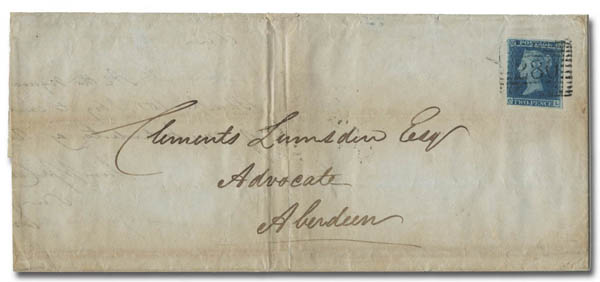 POSTAGE
280
TWO PENCE
Clements Lumsden Esq
Advocate
Aberdeen